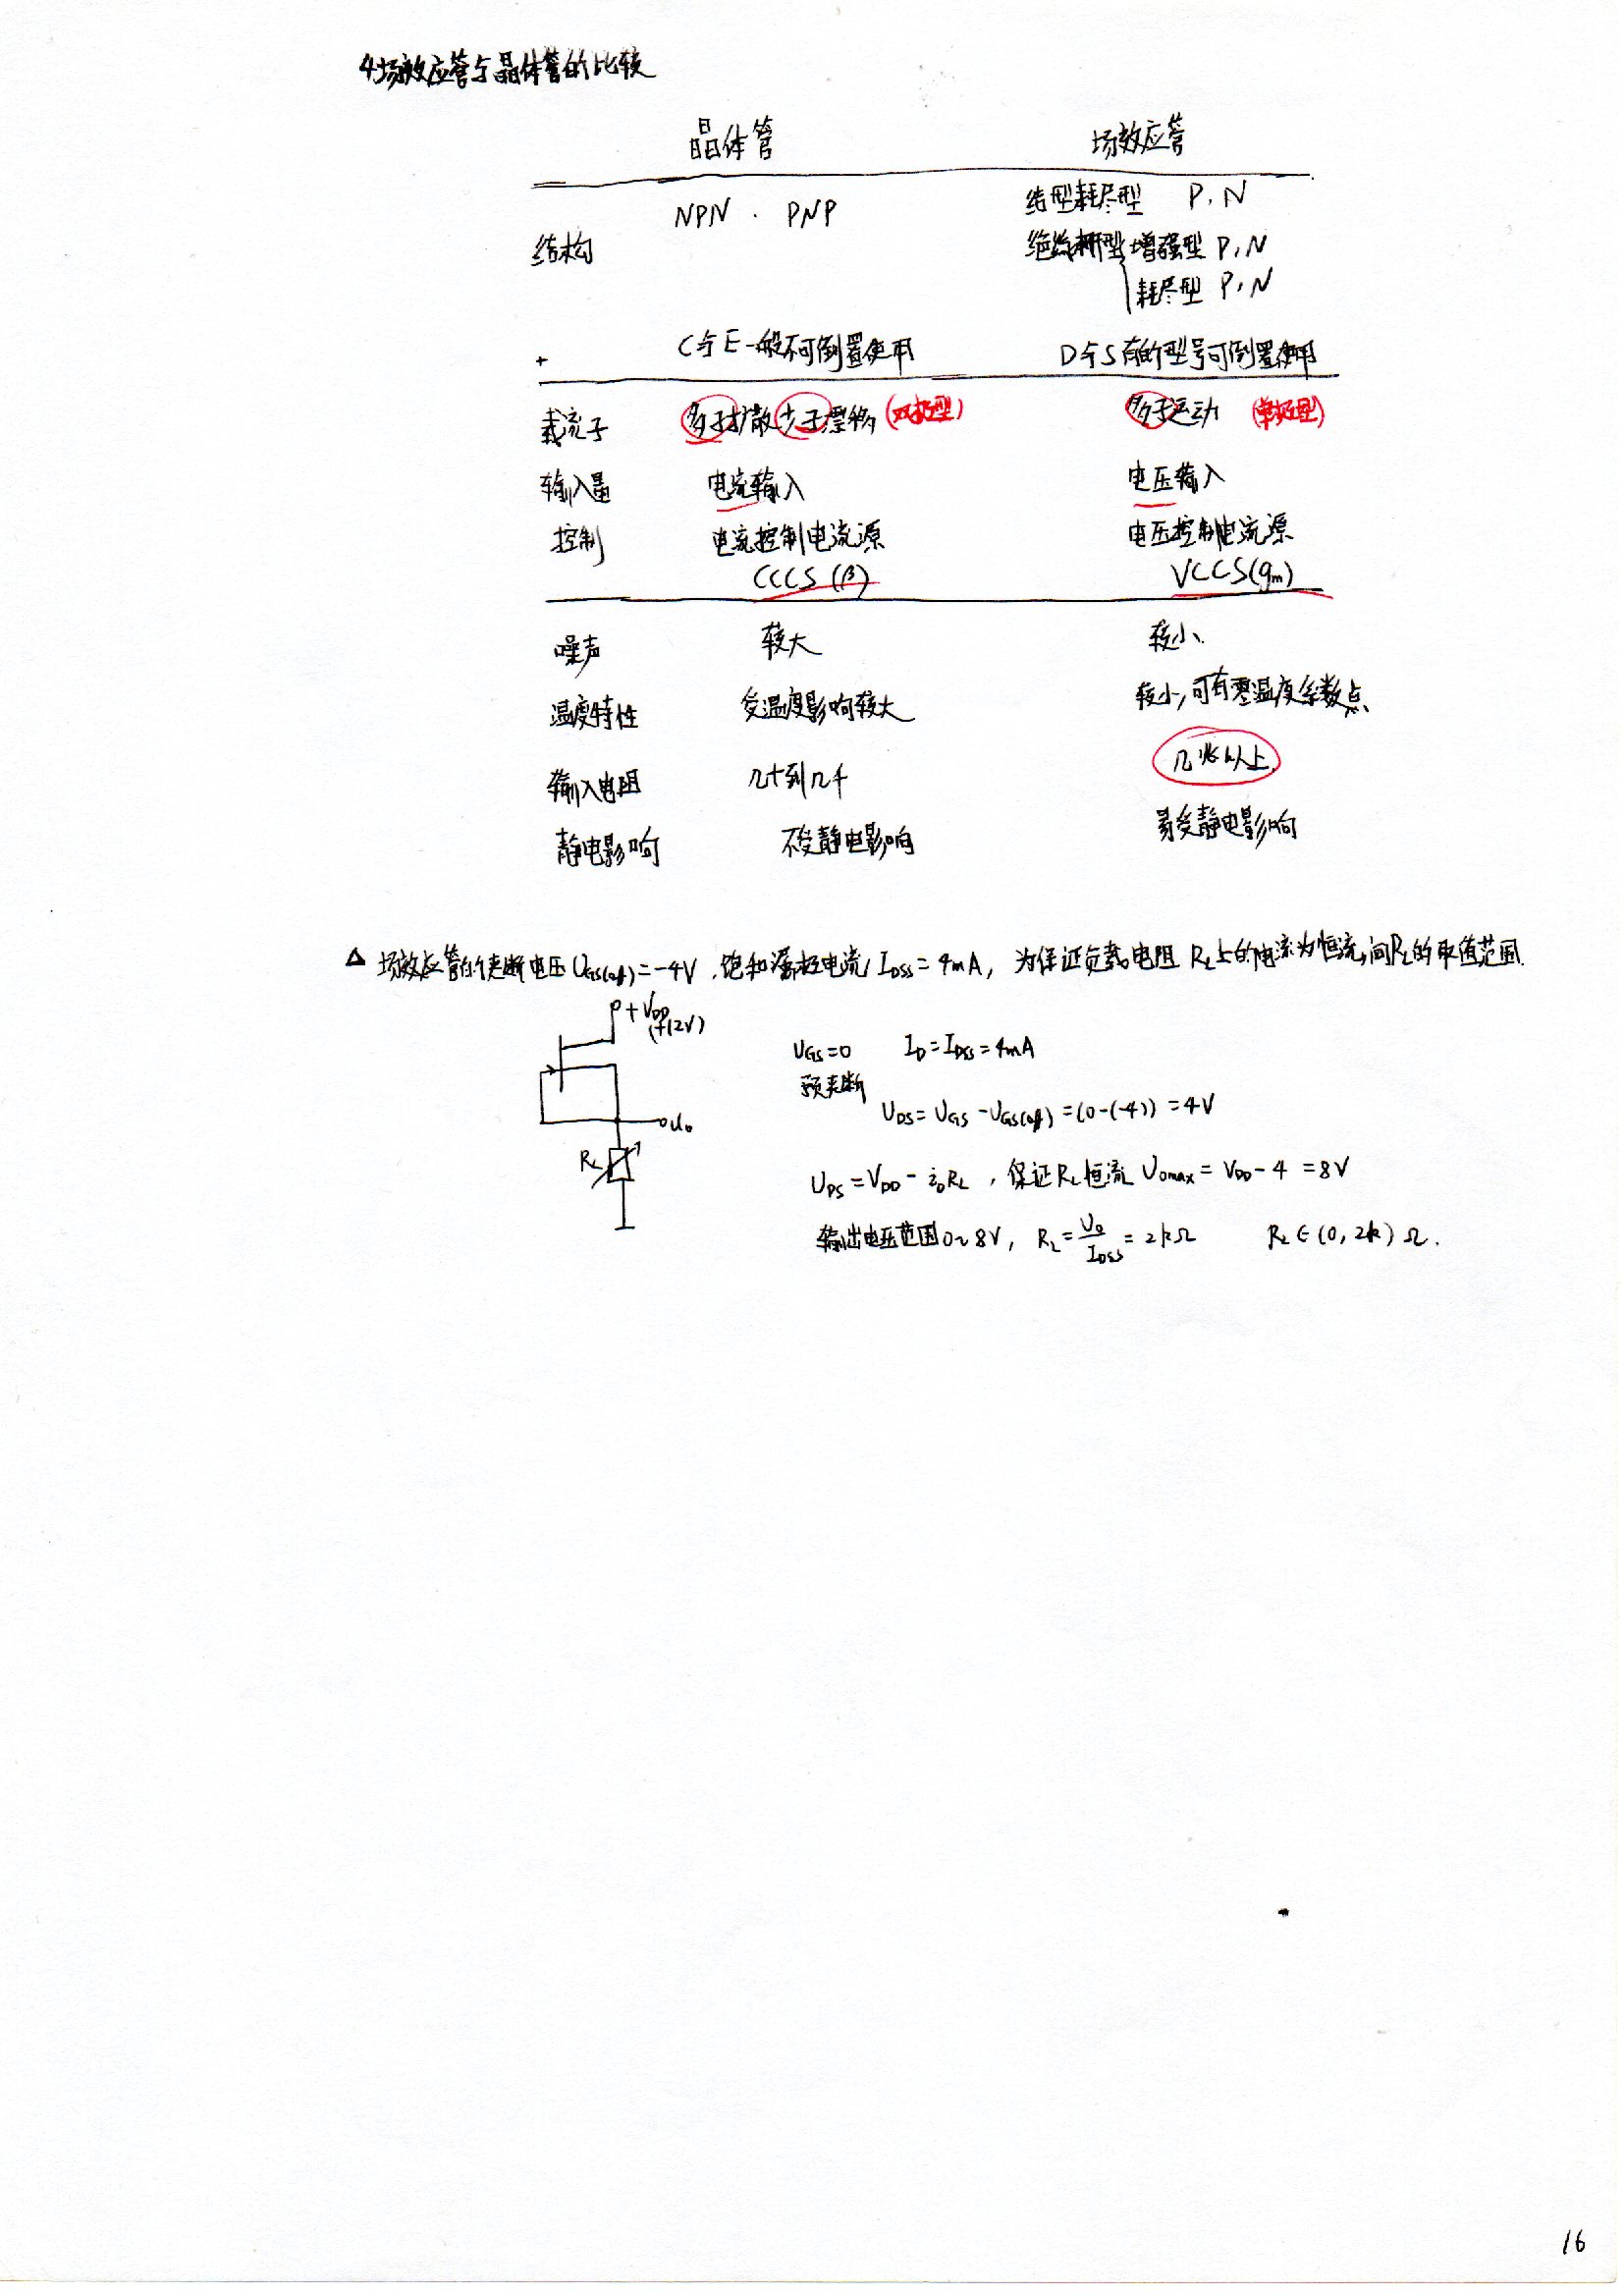 4 场效应管与晶体管的比较
晶体管 场效应管
结构 NPN . PNP 结型耗尽型 P,N
绝缘栅型 增强型 P,N
耗尽型 P,N
C与E一般不可倒置使用 D与S有的型号可倒置使用
载流子 多子扩散 少子漂移 (双极型) 多子运动 (单极型)
输入量 电流输入 电压输入
控制 电流控制电流源 电压控制电流源
CCCS (β) VCCS(gm)
噪声 较大 较小
温度特性 受温度影响较大 较小,可有零温度系数点
输入电阻 几十到几千 几兆以上
静电影响 不受静电影响 易受静电影响
△ 场效应管的夹断电压 UGS(off)=-4V,饱和漏极电流 IDSS=4mA, 为保证负载电阻 RL上的电流为恒流,问RL的取值范围.
+VDD
(+12V)
uo
RL
UGS=0 ID=IDSS=4mA
预夹断
UDS=UGS-UGS(off)=(0-(-4))=4V
UDS=VDD-iDRL , 保证RL恒流 UOmax=VDD-4=8V
输出电压范围0~8V, RL=Uo/IDSS=2kΩ RL∈(0,2k)Ω.
16